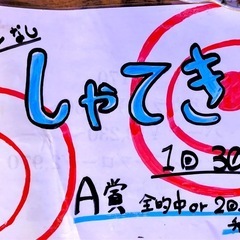 なし
しゃてき
1回 30
A賞 全的中 or 2回